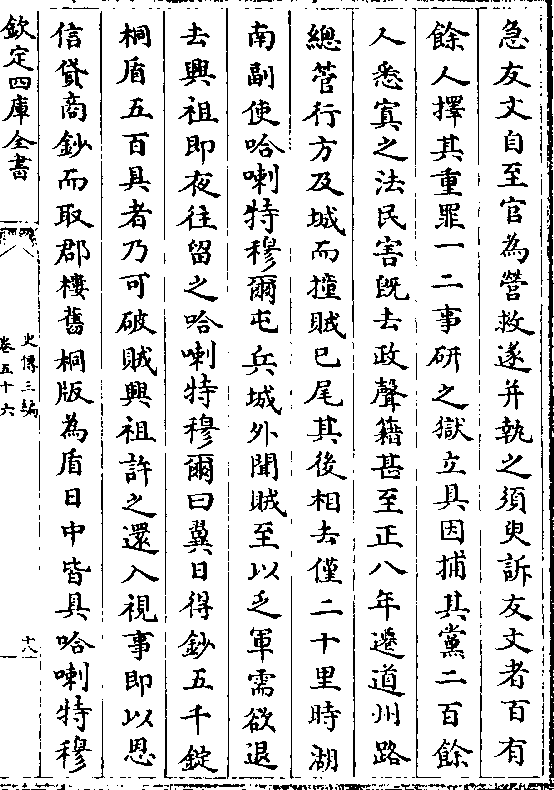 急友文自至官為營救遂并執之須臾訴友文者百有
餘人擇其重罪一二事研之獄立具因捕其黨二百餘
人悉寘之法民害既去政聲籍甚至正八年遷道州路
總管行方及城而撞賊已尾其後相去僅二十里時湖
南副使哈喇特穆爾屯兵城外聞賊至以乏軍需欲退
去興祖即夜往留之哈喇特穆爾曰翼日得鈔五千錠
桐盾五百具者乃可破賊興祖許之還入視事即以恩
信貸商鈔而取郡樓舊桐版為盾日中皆具哈喇特穆
欽定四庫全書
史傳三編
卷五十六
十八